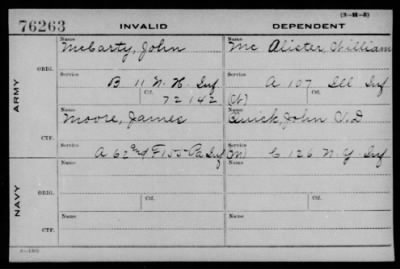 (3-M-5)
76263 INVALID DEPENDENT
Name Name
McCarty, John Mc Alister, William
ORIG.
Service Service
B 11 N. H. Inf A 107 Ill Inf
Ctf. 72142 Ctf.
ARMY
Name Name (W)
Moore, James Quick, John
CTF.
Service Service
A 62nd F 155 Pa Inf (M) C 126 N. Y. Inf
Name Name
ORIG.
Service Service
NAVY
Ctf. Ctf.
Name Name
CTF.
Service Service